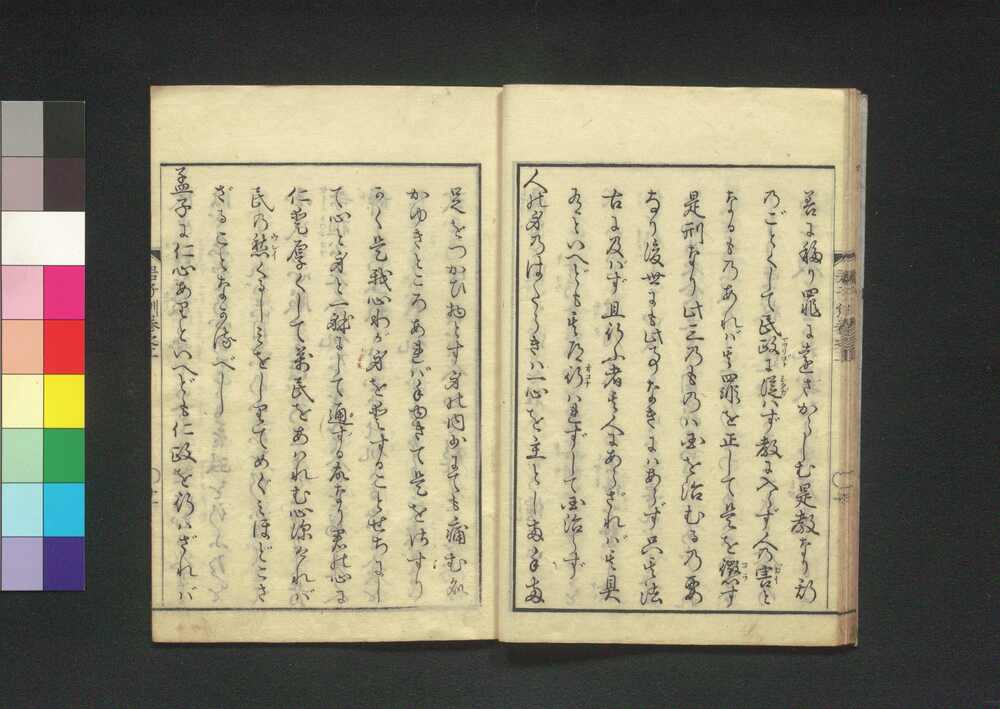 善に移り罪に遠ざからしむ是教なり初
のごとくして民政に従はず教に入らず人の害と
なるものあれば其罪を正して是を懲す
是刑なり此三のものは国を治むるの要
なり後世にも此事なきにはあらず只其法
古に及ばず且行ふ者其人にあらざれば其具
ありといへども其道行はれずして国治らず
人の身のはたらきは一心を主とし毎手毎
足をつかひ物とす身の内少にても痛む処
かゆきところあれば手ゆきて是をさすり
かく是我心わが身を愛することせちにし
て心と身と一体にして通ずる故なり君の心に
仁愛厚くして万民をあはれむ心深ければ
民の愁くるしみをしりてめぐみほどこさ
ざることなかるべし
孟子に仁心ありといへども仁政を行はざれば
君子訓巻之